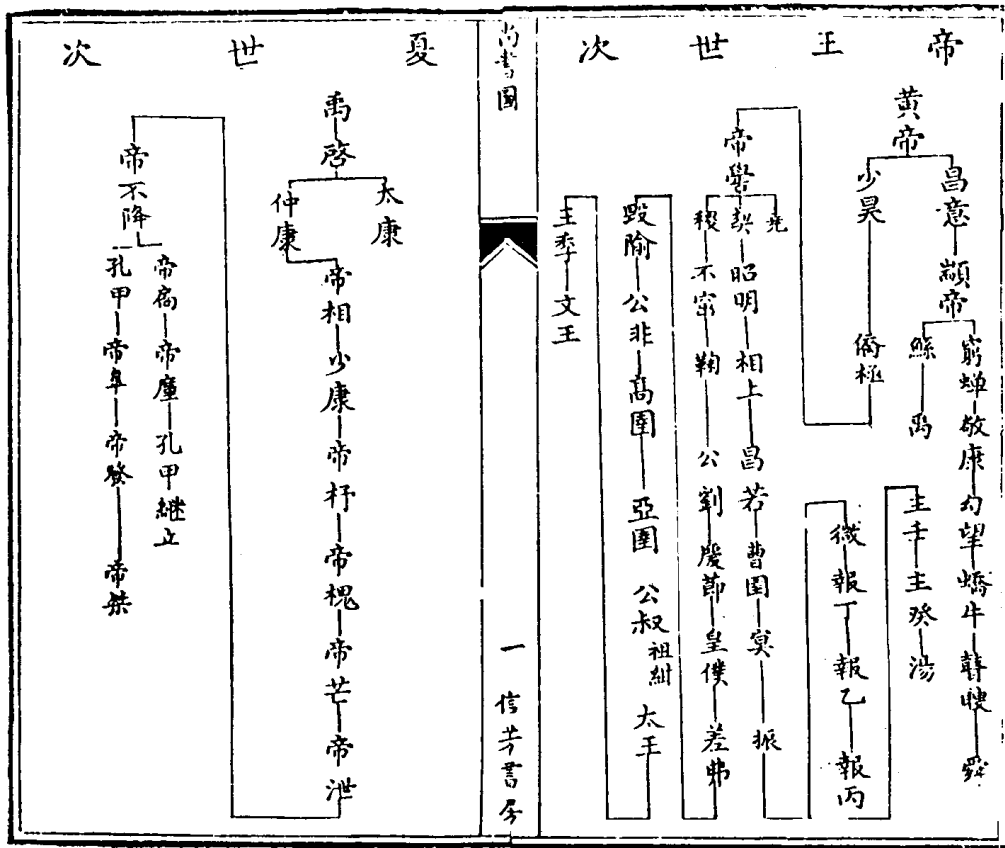 帝王世次
黄帝
昌意 顓帝
窮蝉 敬康 勾望 蟜牛 瞽瞍 舜
鯀 禹
少昊 僑極
帝嚳
堯
契 昭明 相土 昌若 曹圉 冥 振
微 報丁 報乙 報丙
主壬 主癸 湯
稷 不窋 鞠 公劉 慶節 皇僕 差弗
毀隃 公非 高圉 亞圉 公叔祖紺 太王
王季 文王
尚書圖
一
信芳書房
夏世次
禹
啓
太康
仲康
帝相 少康 帝杼 帝槐 帝芒 帝泄
帝不降
帝扃 帝廑 孔甲継立
孔甲 帝皐 帝發 帝桀